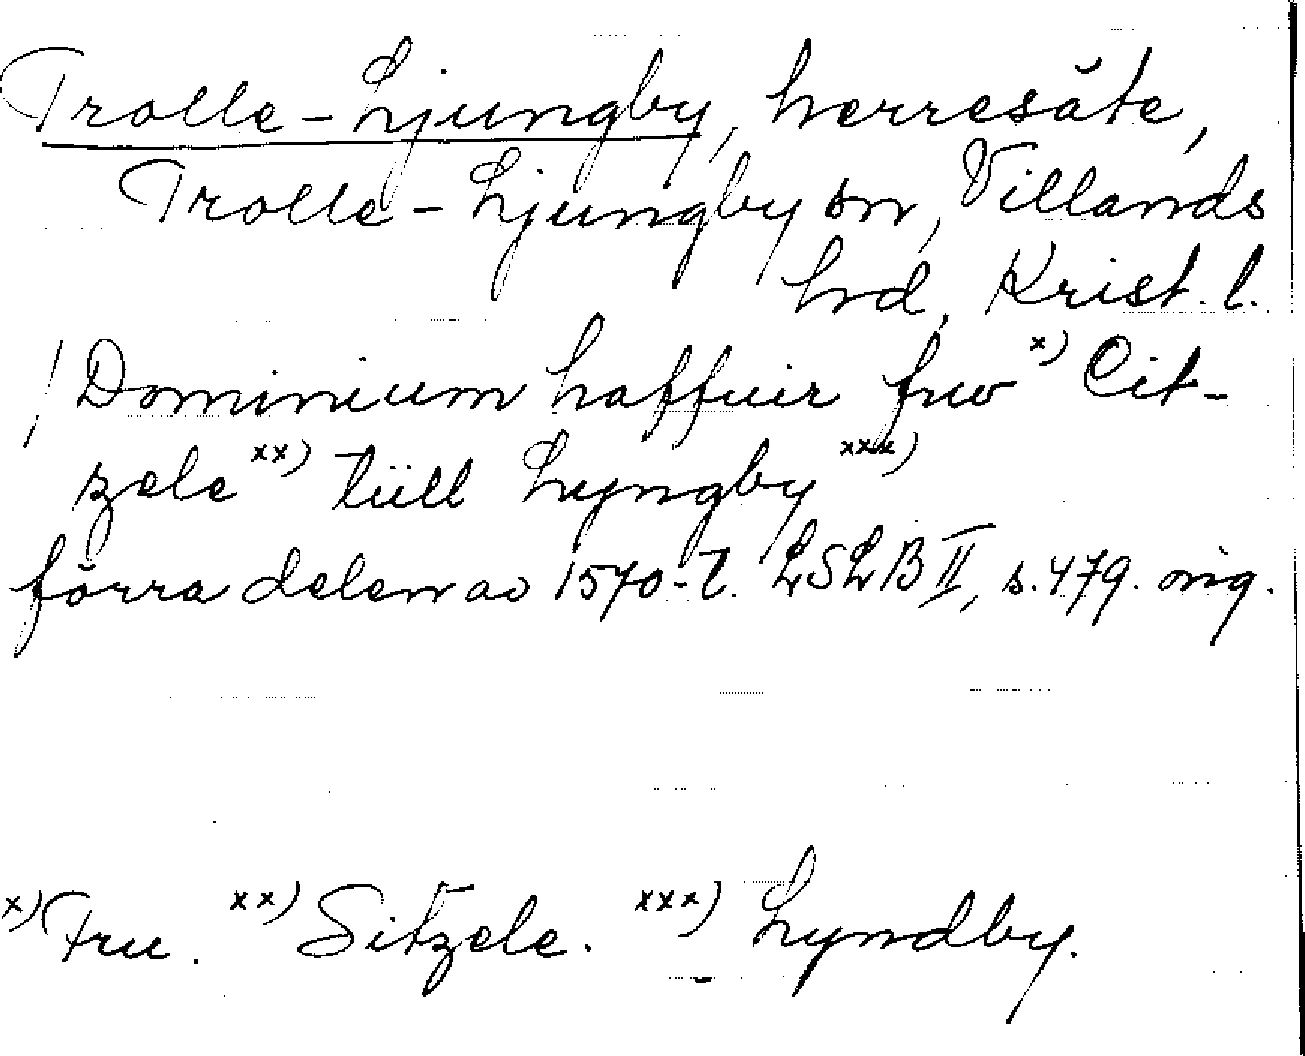 Trolle-Ljungby, herresäte,
Trolle-Ljungby sn, Villands
hrd, Krist. l.
/ Dominium haffuir fruo x) Cit-
zele xx) tiill Lyngby xxx)
förra delen av 1570-t. LSLB II, s. 479. orig.
x) Fru. xx) Sitzele. xxx) Lyndby.